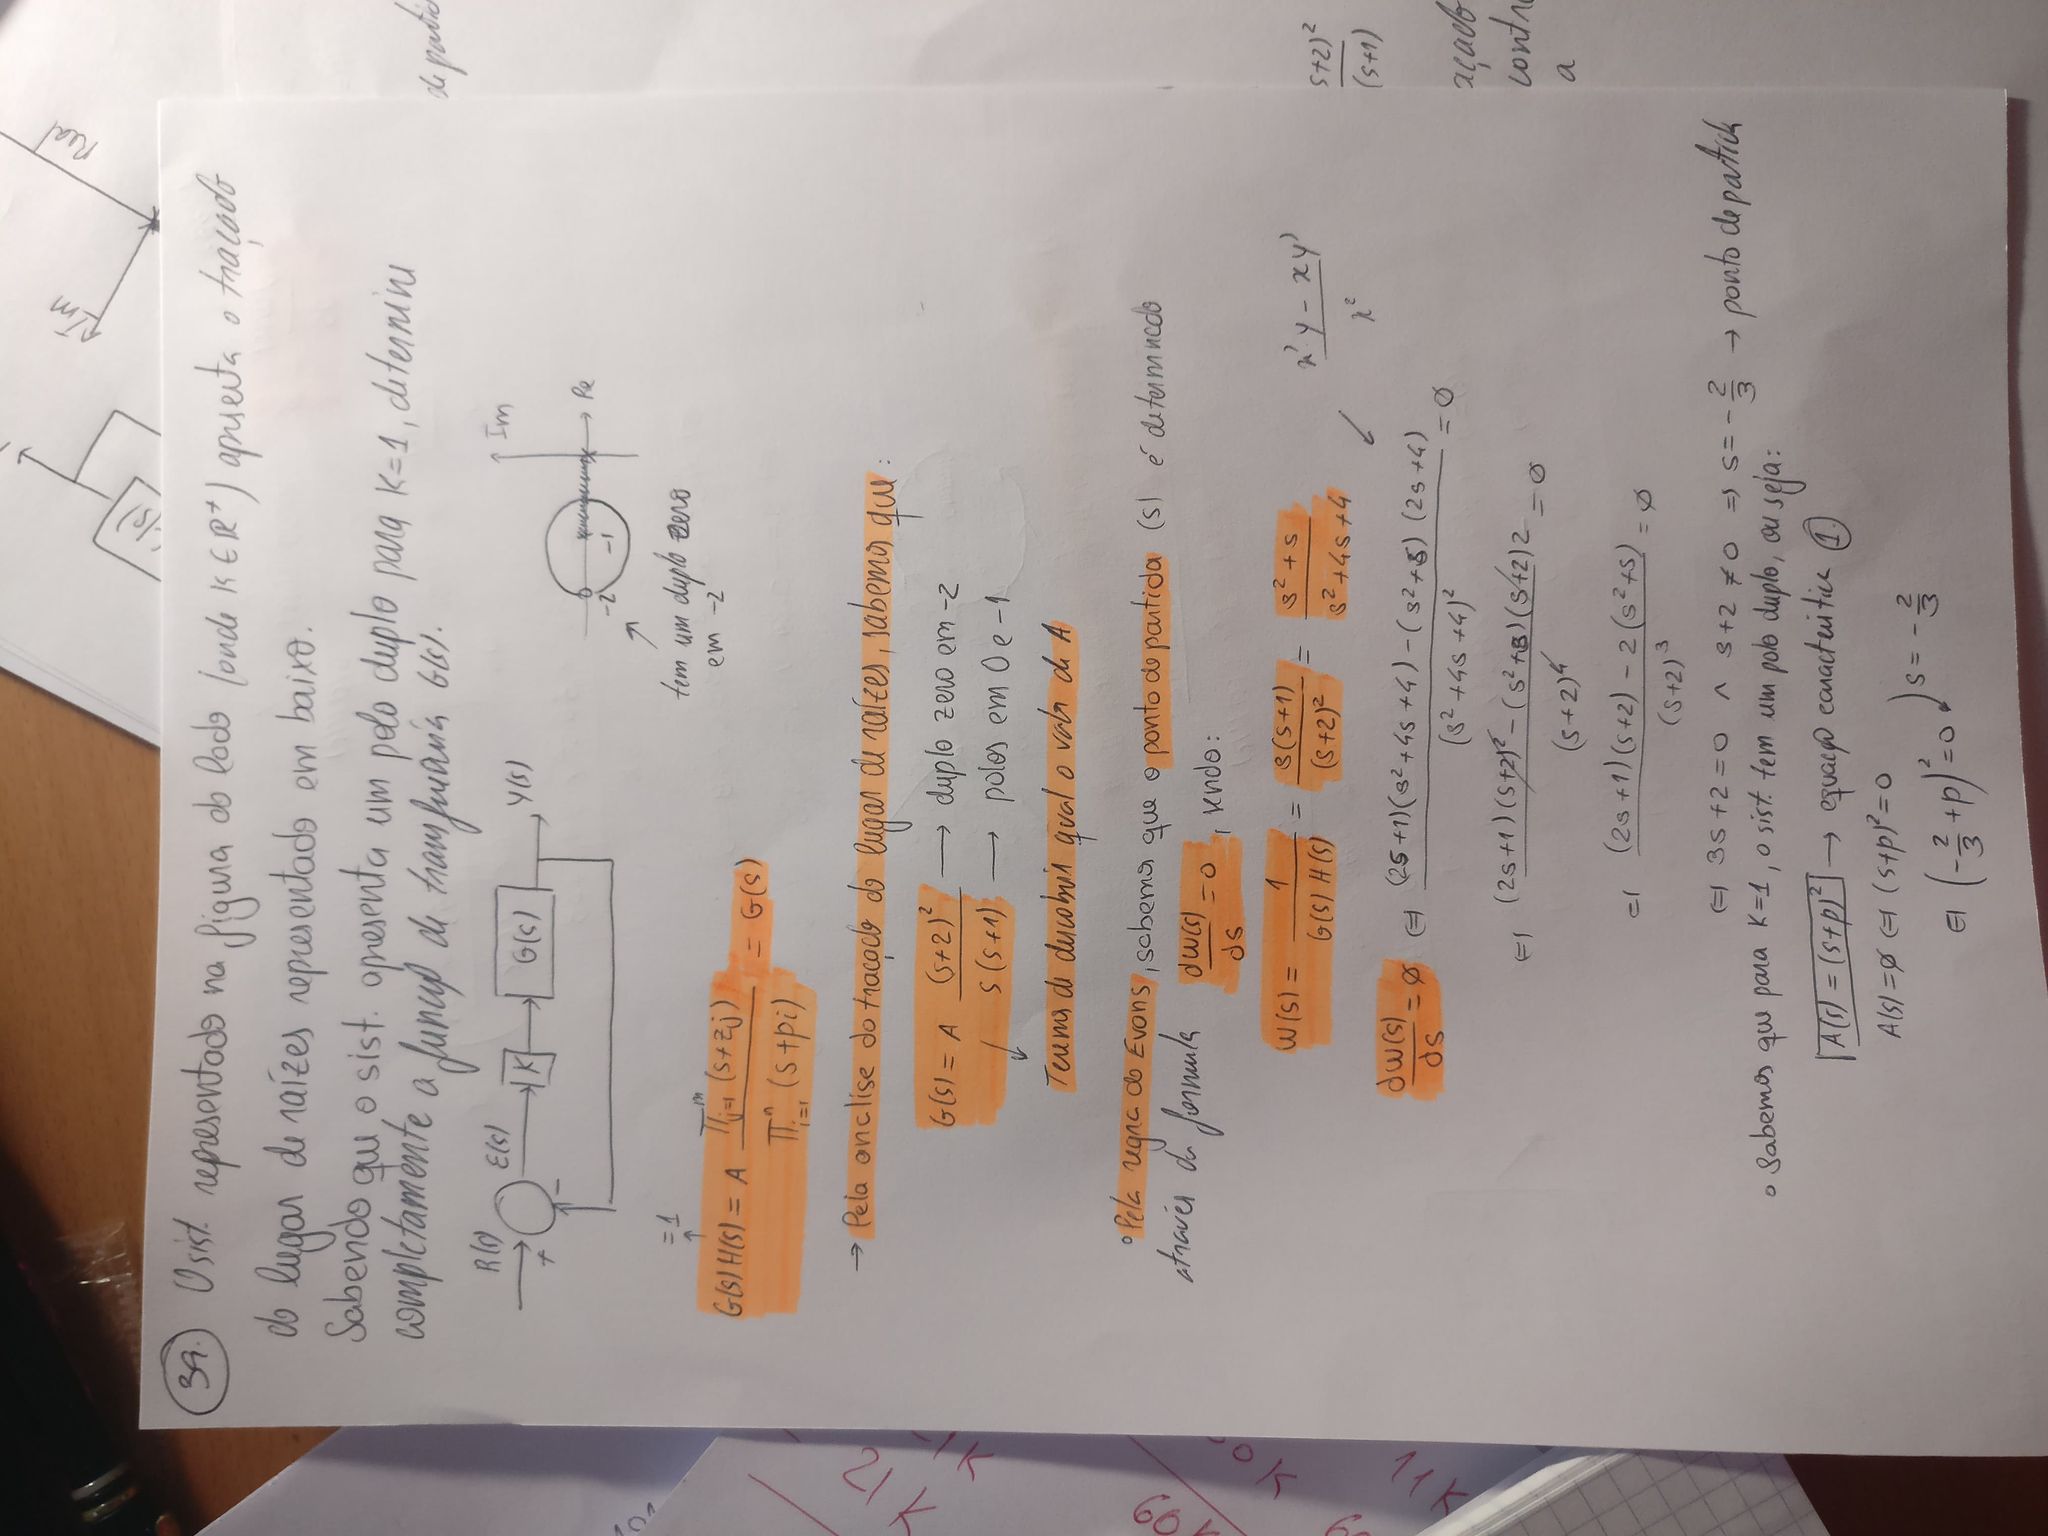 39. O sist. representado na figura do lado (onde K ∈ R⁺) apresenta o traçado
do lugar de raízes representado em baixo.
Sabendo que o sist. apresenta um polo duplo para K=1, determine
completamente a função de transferência G(s).
R(s) E(s) K G(s) Y(s)
+ −
Im
Re
-2 -1
tem um duplo zero
em -2
=1
G(s) H(s) = A ∏ᵐⱼ₌₁ (s+zj) / ∏ⁿᵢ₌₁ (s+pi) = G(s)
→ Pela analise do traçado do lugar de raízes, sabemos que:
G(s) = A (s+2)² / s(s+1)
→ duplo zero em -2
→ polos em 0 e -1
Teremos de descobrir qual o valor de A
• Pela regra do Evans, sabemos que o ponto de partida (s) é determinado
através da formula dW(s)/ds = 0, sendo:
W(s) = 1 / G(s) H(s) = s(s+1) / (s+2)² = s²+s / s²+4s+4
x'y - xy' / x²
dW(s)/ds = ∅ ⇔ (2s+1)(s²+4s+4) - (s²+s)(2s+4) / (s²+4s+4)² = ∅
⇔ (2s+1)(s+2)² - (s²+s)(s+2)2 / (s+2)⁴ = ∅
⇔ (2s+1)(s+2) - 2(s²+s) / (s+2)³ = ∅
⇔ 3s+2=0 ∧ s+2≠0 ⇒ s = -2/3 → ponto de partida
• Sabemos que para K=1, o sist. tem um polo duplo, ou seja:
A(s) = (s+p)² → equação característica 1.
A(s) = ∅ ⇔ (s+p)² = 0
s = -2/3
⇔ (-2/3 + p)² = 0
(s)
Im
Real
21K
-1K
60K
11K
de partid
s+2)²
(s+1)
açado
contr
a